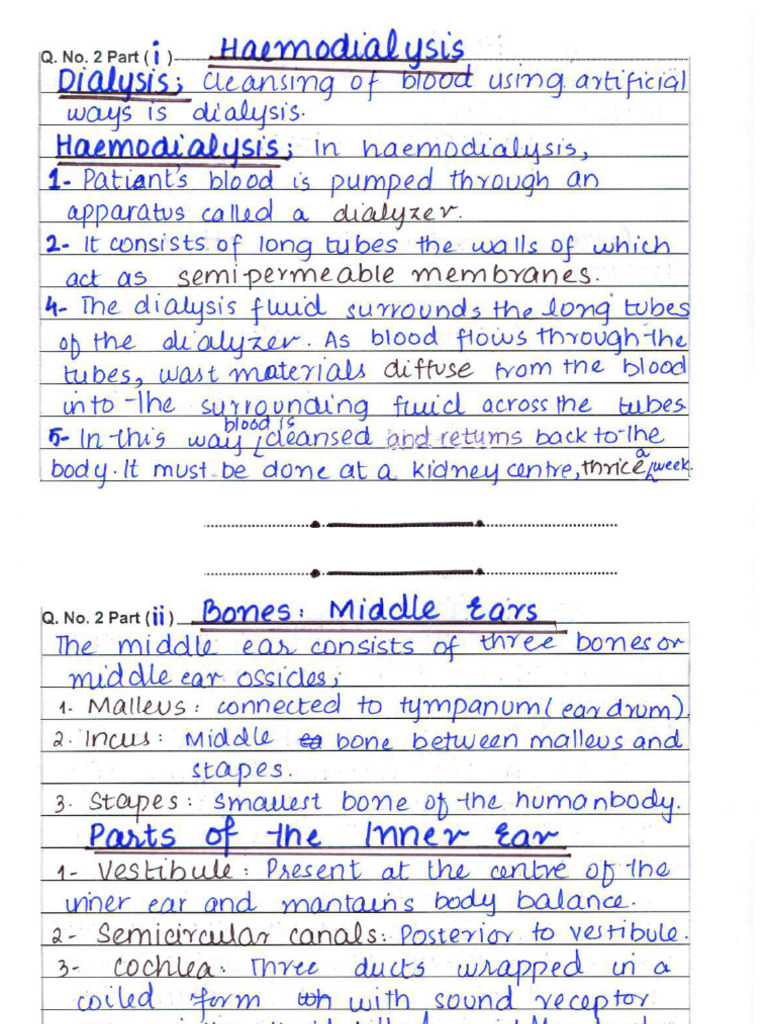 Q. No. 2 Part ( i ) Haemodialysis
Dialysis; Cleansing of blood using artificial
ways is dialysis.
Haemodialysis; In haemodialysis,
1- Patient's blood is pumped through an
apparatus called a dialyzer.
2- It consists of long tubes the walls of which
act as semipermeable membranes.
4- The dialysis fluid surrounds the long tubes
of the dialyzer. As blood flows through the
tubes, wast materials diffuse from the blood
into the surrounding fluid across the tubes
5- In this way blood is cleansed and returns back to the
body. It must be done at a kidney centre, thrice a week.
Q. No. 2 Part ( ii ) Bones: Middle Ears
The middle ear consists of three bones or
middle ear ossicles;
1. Malleus: connected to tympanum (ear drum).
2. Incus: Middle bone between malleus and
stapes.
3. Stapes: smallest bone of the human body.
Parts of the Inner Ear
1- Vestibule: Present at the centre of the
inner ear and mantains body balance.
2- Semicircular canals: Posterior to vestibule.
3- Cochlea: Three ducts wrapped in a
coiled form with sound receptor